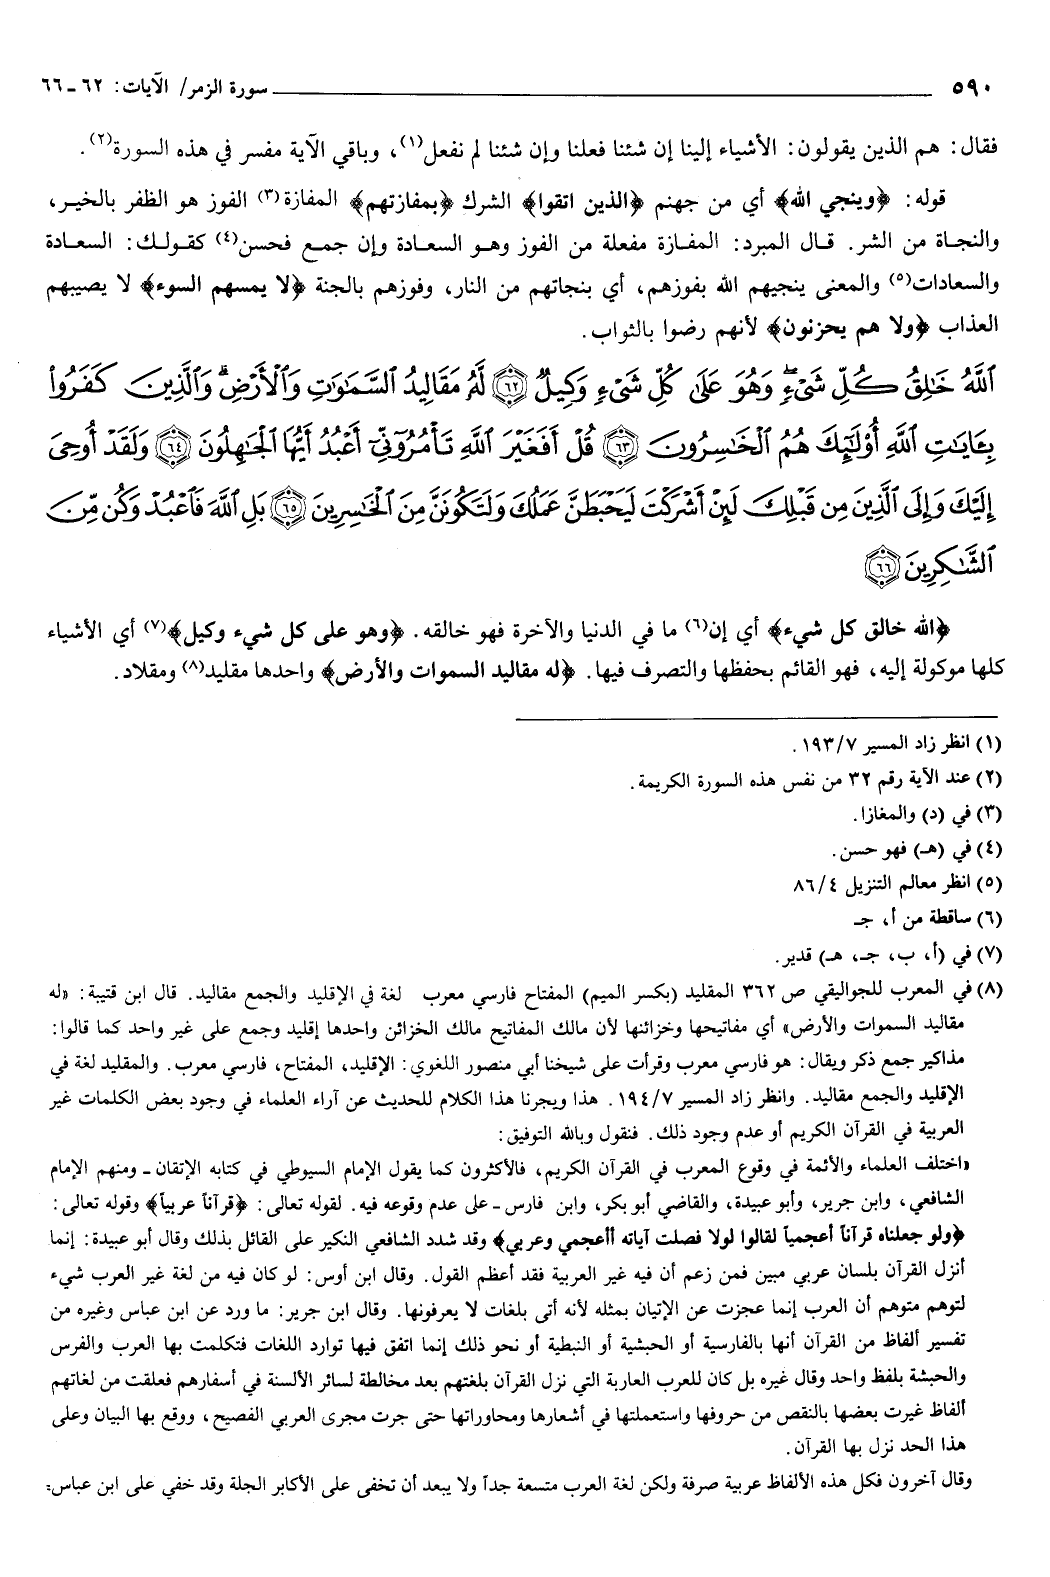 ٥٩٠ سورة الزمر/ الآيات: ٦٢ ـ ٦٦
فقال: هم الذين يقولون: الأشياء إلينا إن شئنا فعلنا وإن شئنا لم نفعل(١)، وباقي الآية مفسر في هذه السورة(٢).
قوله: ﴿وينجي الله﴾ أي من جهنم ﴿الذين اتقوا﴾ الشرك ﴿بمفازتهم﴾ المفازة(٣) الفوز هو الظفر بالخير،
والنجاة من الشر. قال المبرد: المفازة مفعلة من الفوز وهو السعادة وإن جمع فحسن(٤) كقولك: السعادة
والسعادات(٥) والمعنى ينجيهم الله بفوزهم، أي بنجاتهم من النار، وفوزهم بالجنة ﴿لا يمسهم السوء﴾ لا يصيبهم
العذاب ﴿ولا هم يحزنون﴾ لأنهم رضوا بالثواب.
ٱللَّهُ خَٰلِقُ كُلِّ شَىْءٍ ۖ وَهُوَ عَلَىٰ كُلِّ شَىْءٍ وَكِيلٌ ﴿٦٢﴾ لَّهُۥ مَقَالِيدُ ٱلسَّمَٰوَٰتِ وَٱلْأَرْضِ ۗ وَٱلَّذِينَ كَفَرُوا۟
بِـَٔايَٰتِ ٱللَّهِ أُو۟لَٰٓئِكَ هُمُ ٱلْخَٰسِرُونَ ﴿٦٣﴾ قُلْ أَفَغَيْرَ ٱللَّهِ تَأْمُرُوٓنِّىٓ أَعْبُدُ أَيُّهَا ٱلْجَٰهِلُونَ ﴿٦٤﴾ وَلَقَدْ أُوحِىَ
إِلَيْكَ وَإِلَى ٱلَّذِينَ مِن قَبْلِكَ لَئِنْ أَشْرَكْتَ لَيَحْبَطَنَّ عَمَلُكَ وَلَتَكُونَنَّ مِنَ ٱلْخَٰسِرِينَ ﴿٦٥﴾ بَلِ ٱللَّهَ فَٱعْبُدْ وَكُن مِّنَ
ٱلشَّٰكِرِينَ ﴿٦٦﴾
﴿الله خالق كل شيء﴾ أي إن(٦) ما في الدنيا والآخرة فهو خالقه. ﴿وهو على كل شيء وكيل﴾(٧) أي الأشياء
كلها موكولة إليه، فهو القائم بحفظها والتصرف فيها. ﴿له مقاليد السموات والأرض﴾ واحدها مقليد(٨) ومقلاد.
(١) انظر زاد المسير ١٩٣/٧.
(٢) عند الآية رقم ٣٢ من نفس هذه السورة الكريمة.
(٣) في (د) والمغازا.
(٤) في (هـ) فهو حسن.
(٥) انظر معالم التنزيل ٨٦/٤
(٦) ساقطة من أ، جـ
(٧) في (أ، ب، جـ، هـ) قدير.
(٨) في المعرب للجواليقي ص ٣٦٢ المقليد (بكسر الميم) المفتاح فارسي معرب لغة في الإقليد والجمع مقاليد. قال ابن قتيبة: «له
مقاليد السموات والأرض» أي مفاتيحها وخزائنها لأن مالك المفاتيح مالك الخزائن واحدها إقليد وجمع على غير واحد كما قالوا:
مذاكير جمع ذكر ويقال: هو فارسي معرب وقرأت على شيخنا أبي منصور اللغوي: الإقليد، المفتاح، فارسي معرب. والمقليد لغة في
الإقليد والجمع مقاليد. وانظر زاد المسير ١٩٤/٧. هذا ويجرنا هذا الكلام للحديث عن آراء العلماء في وجود بعض الكلمات غير
العربية في القرآن الكريم أو عدم وجود ذلك. فنقول وبالله التوفيق:
«اختلف العلماء والأئمة في وقوع المعرب في القرآن الكريم، فالأكثرون كما يقول الإمام السيوطي في كتابه الإتقان ـ ومنهم الإمام
الشافعي، وابن جرير، وأبو عبيدة، والقاضي أبو بكر، وابن فارس ـ على عدم وقوعه فيه. لقوله تعالى: ﴿قرآناً عربياً﴾ وقوله تعالى:
﴿ولو جعلناه قرآناً أعجمياً لقالوا لولا فصلت آياته أأعجمي وعربي﴾ وقد شدد الشافعي النكير على القائل بذلك وقال أبو عبيدة: إنما
أنزل القرآن بلسان عربي مبين فمن زعم أن فيه غير العربية فقد أعظم القول. وقال ابن أوس: لو كان فيه من لغة غير العرب شيء
لتوهم متوهم أن العرب إنما عجزت عن الإتيان بمثله لأنه أتى بلغات لا يعرفونها. وقال ابن جرير: ما ورد عن ابن عباس وغيره من
تفسير ألفاظ من القرآن أنها بالفارسية أو الحبشية أو النبطية أو نحو ذلك إنما اتفق فيها توارد اللغات فتكلمت بها العرب والفرس
والحبشة بلفظ واحد وقال غيره بل كان للعرب العاربة التي نزل القرآن بلغتهم بعد مخالطة لسائر الألسنة في أسفارهم فعلقت من لغاتهم
ألفاظ غيرت بعضها بالنقص من حروفها واستعملتها في أشعارها ومحاوراتها حتى جرت مجرى العربي الفصيح، ووقع بها البيان وعلى
هذا الحد نزل بها القرآن.
وقال آخرون فكل هذه الألفاظ عربية صرفة ولكن لغة العرب متسعة جداً ولا يبعد أن تخفى على الأكابر الجلة وقد خفي على ابن عباس=